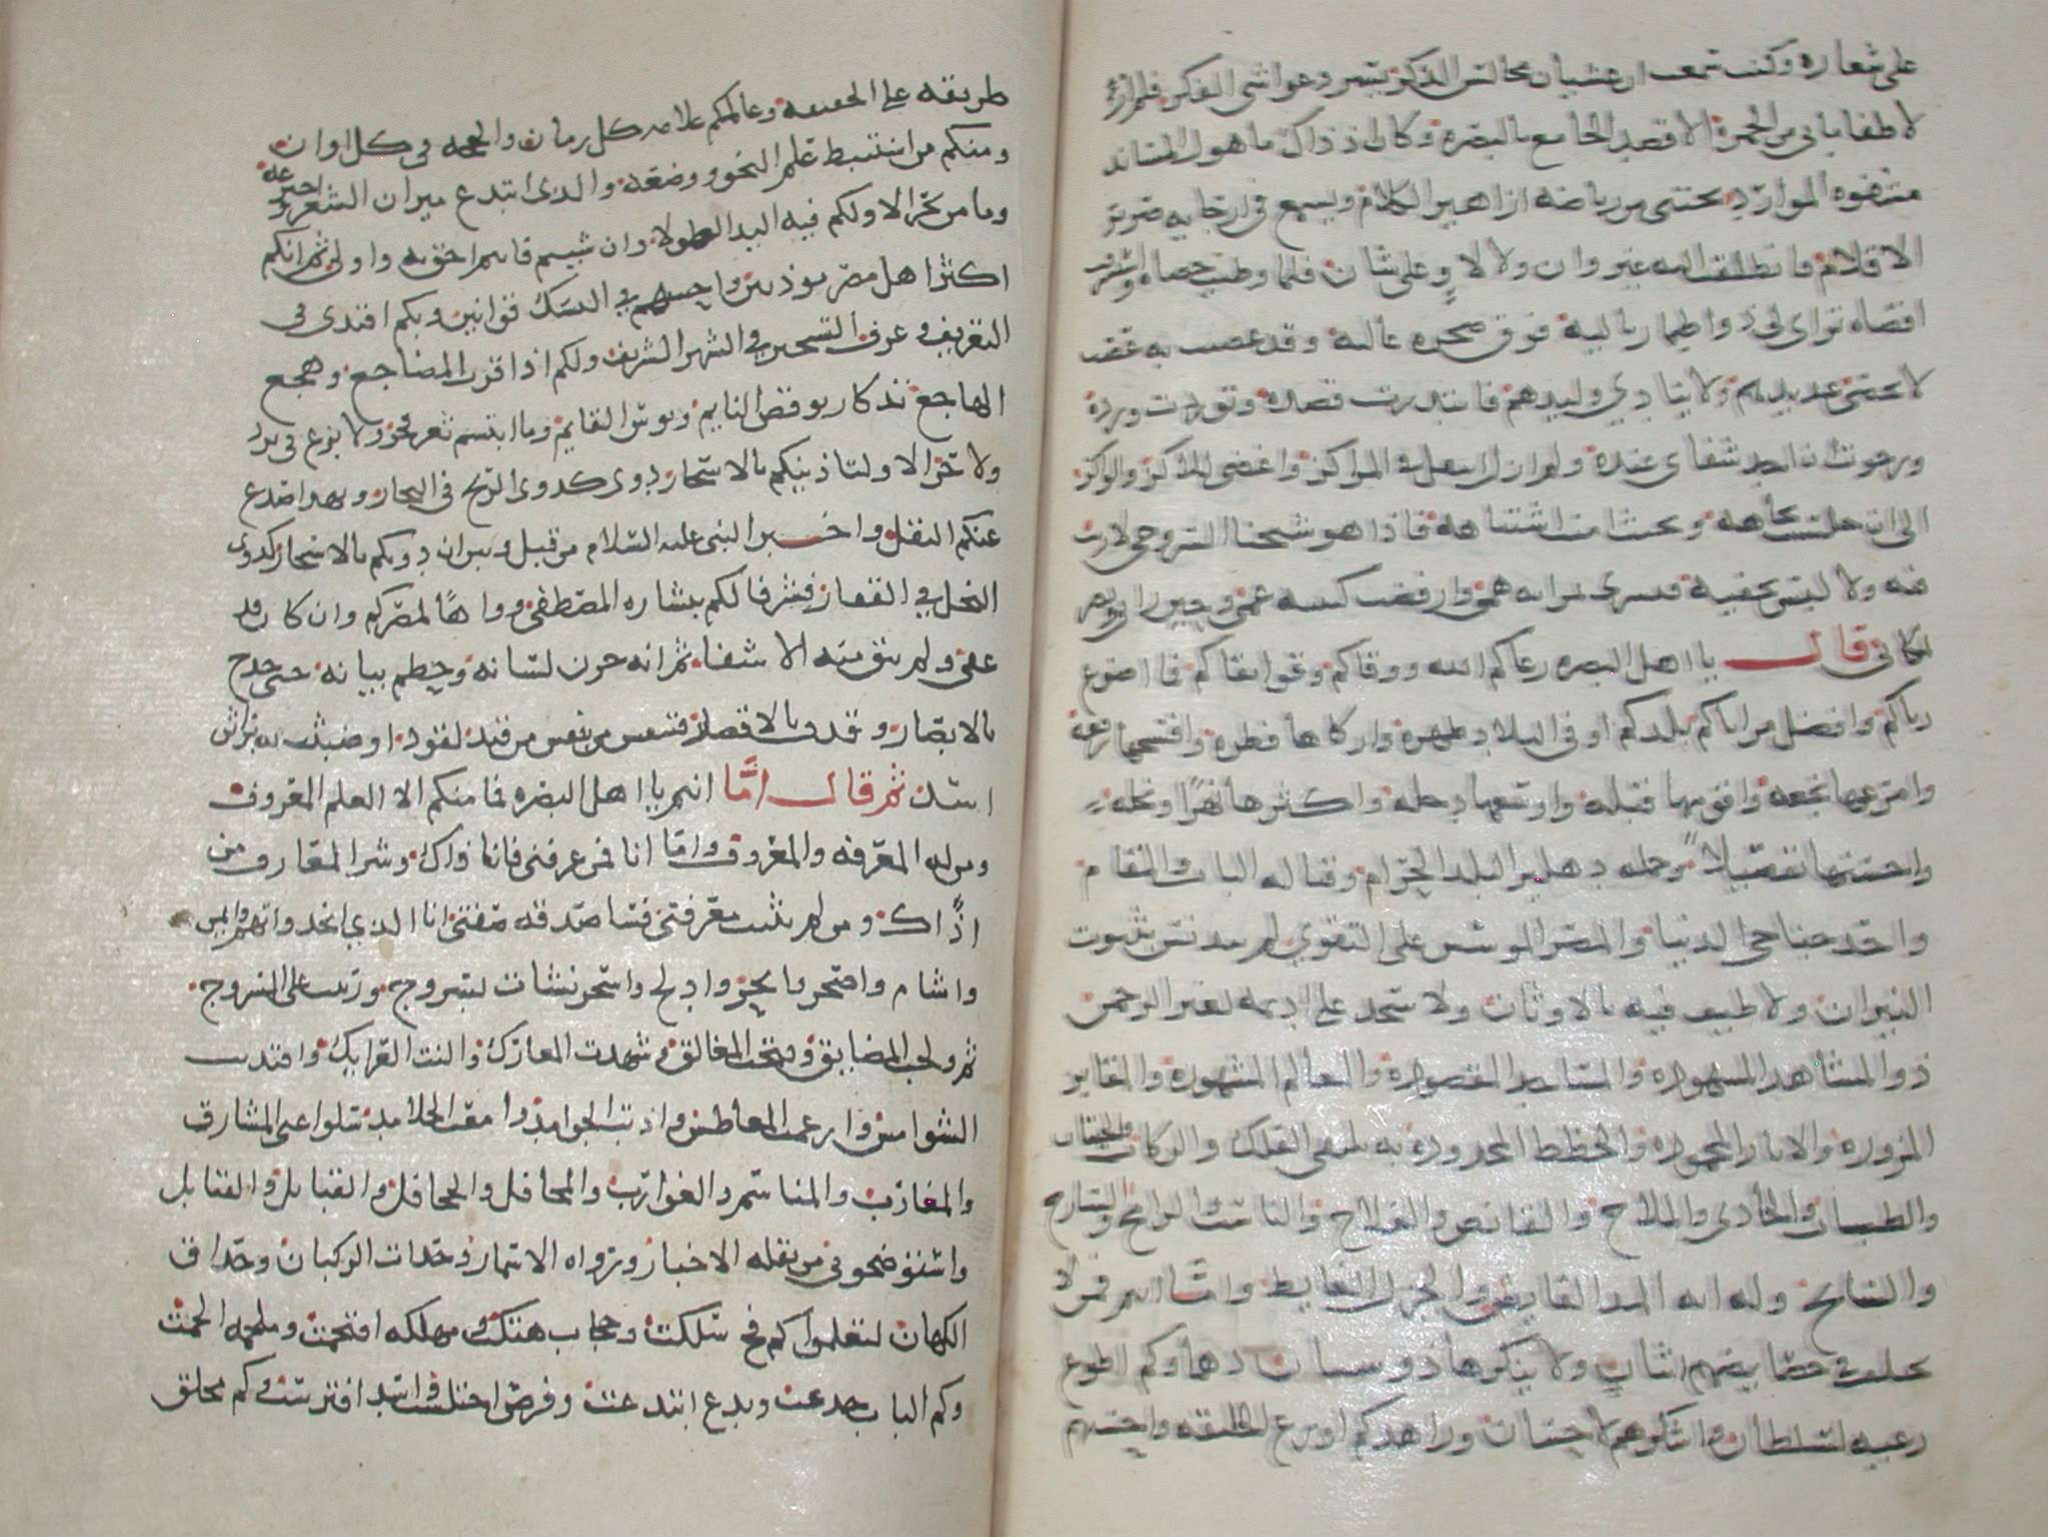 على شعاره وكنت سمعت ان غشيان مجالس الذكر يسرو غواشي الفكر فلم ار
لاطفا ما بي من الجمرة الا قصد الجامع بالبصرة وكان اذ ذاك ماهول المساند
مشفوه الموارد يجتنى من رياضه ازاهير الكلام ويسمع في ارجايه صرير
الاقلام فانطلقت اليه غير وان ولا لاو على شان فلما وطيت حصاه واستشرفت
اقصاه تراى لي ذو اطمار بالية فوق صخره عاليه وقد عصبت به عصب
لا يحصى عديدهم ولا ينادي وليدهم فابتدرت قصده وتوردت ورده
ورجوت ان اجد شفاى عنده ولم ازل اتنقل في المراكز واغضي للاكز والواكز
الى ان جلست تجاهه وبحيث امنت اشتباهه فاذا هو شيخنا السروجي لا ريب
فيه ولا لبس يخفيه فتسرى بمراه همي وارفضت كتيبه غمي وحين راني وبصر
بمكاني قال يا اهل البصره رعاكم الله ووقاكم وقوا تقاكم فما اضوع
رياكم وافضل مزاياكم بلدكم اوفى البلاد طهره وازكاها فطره وافسحها رقعه
وامرعها نجعه واقومها قبله واوسعها دجله واكثرها نهرا ونخله
واحسنها تفصيلا وجمله دهليز البلد الحرام وقباله الباب والمقام
واحد جناحي الدنيا والمصر الموسس على التقوى لم يتدنس ببيوت
النيران ولا طيف فيه بالاوثان ولا سجد على اديمه لغير الرحمن
ذو المشاهد المشهوده والمساجد المقصوده والمعالم المشهوره والمقابر
المزوره والاثار المحموده والخطط المحدوده به تلتقي الفلك والركاب والحيتان
والضباب والحادي والملاح والقانص والفلاح والناشب والرامح والسارح
والسابح وله ايه المد الفايض والجزر الغايض واما انتم فمن لا
يختلف في خصايصهم اثنان ولا ينكرها ذو شنان دهماوكم اطوع
رعيه لسلطان واشكرهم لاحسان وزاهدكم اورع الخليقه واحسنهم
طريقه على الحقيقه وعالمكم علامه كل زمان والحجه في كل اوان
ومنكم من استنبط علم النحو ووضعه والذى ابتدع ميزان الشعر واخترعه
وما من فخر الا ولكم فيه اليد الطولا وان شيتم قلتم احق به واولى ثم انكم
اكثر اهل مصر موذنين واحسنهم في النسك قوانين وبكم اقتدى في
التعريف وعرف التسحير في الشهر الشريف ولكم اذا قرت المضاجع وهجع
الهاجع تذكار يوقظ النايم ويونس القايم وما ابتسم ثغر فجر ولا بزغ في برد
ولا حر الا ولتاذينكم بالاسحار دوى كدوى الريح في البحار وبهذا صدع
عنكم النقل واخبر النبي عليه السلام من قبل وبين ان دويكم بالاسحار كدوى
النحل في القفار فشرفا لكم ببشاره المصطفى وواها لمصركم وان كان قد
عفى ولم يبق منه الا شفا ثم انه خزن لسانه وخطم بيانه حتى حدج
بالابصار وقذف بالاقصار فتنفس تنفس من قيد لقود او ضبثت به براثن
اسد ثم قال اما انتم يا اهل البصره فما منكم الا العلم المعروف
ومن له المعرفه والمعروف واما انا فمن عرفني فانا ذاك وشر المعارف من
اذاك ومن لم يثبت معرفتي فساصدقه صفتي انا الذي انجد واتهم وايمن
واشام واصحر وابحر وادلج واسحر نشات بسروج وربيت على السروج
ثم ولجت المضايق وفتحت المغالق وشهدت المعارك والنت العرايك واقتدت
الشوامس وارغمت المعاطس واذبت الجوامد وامعت الجلامد سلوا عني المشارق
والمغارب والمناسم والغوارب والمحافل والجحافل والقبايل والقنابل
واستوضحوني من نقله الاخبار ورواه الاسمار وحداة الركبان وحذاق
الكهان لتعلموا كم فج سلكت وحجاب هتكت ومهلكه اقتحمت وملحمه الحمت
وكم الباب خدعت وبدع ابتدعت وفرص اختلست واسد افترست وكم محلق